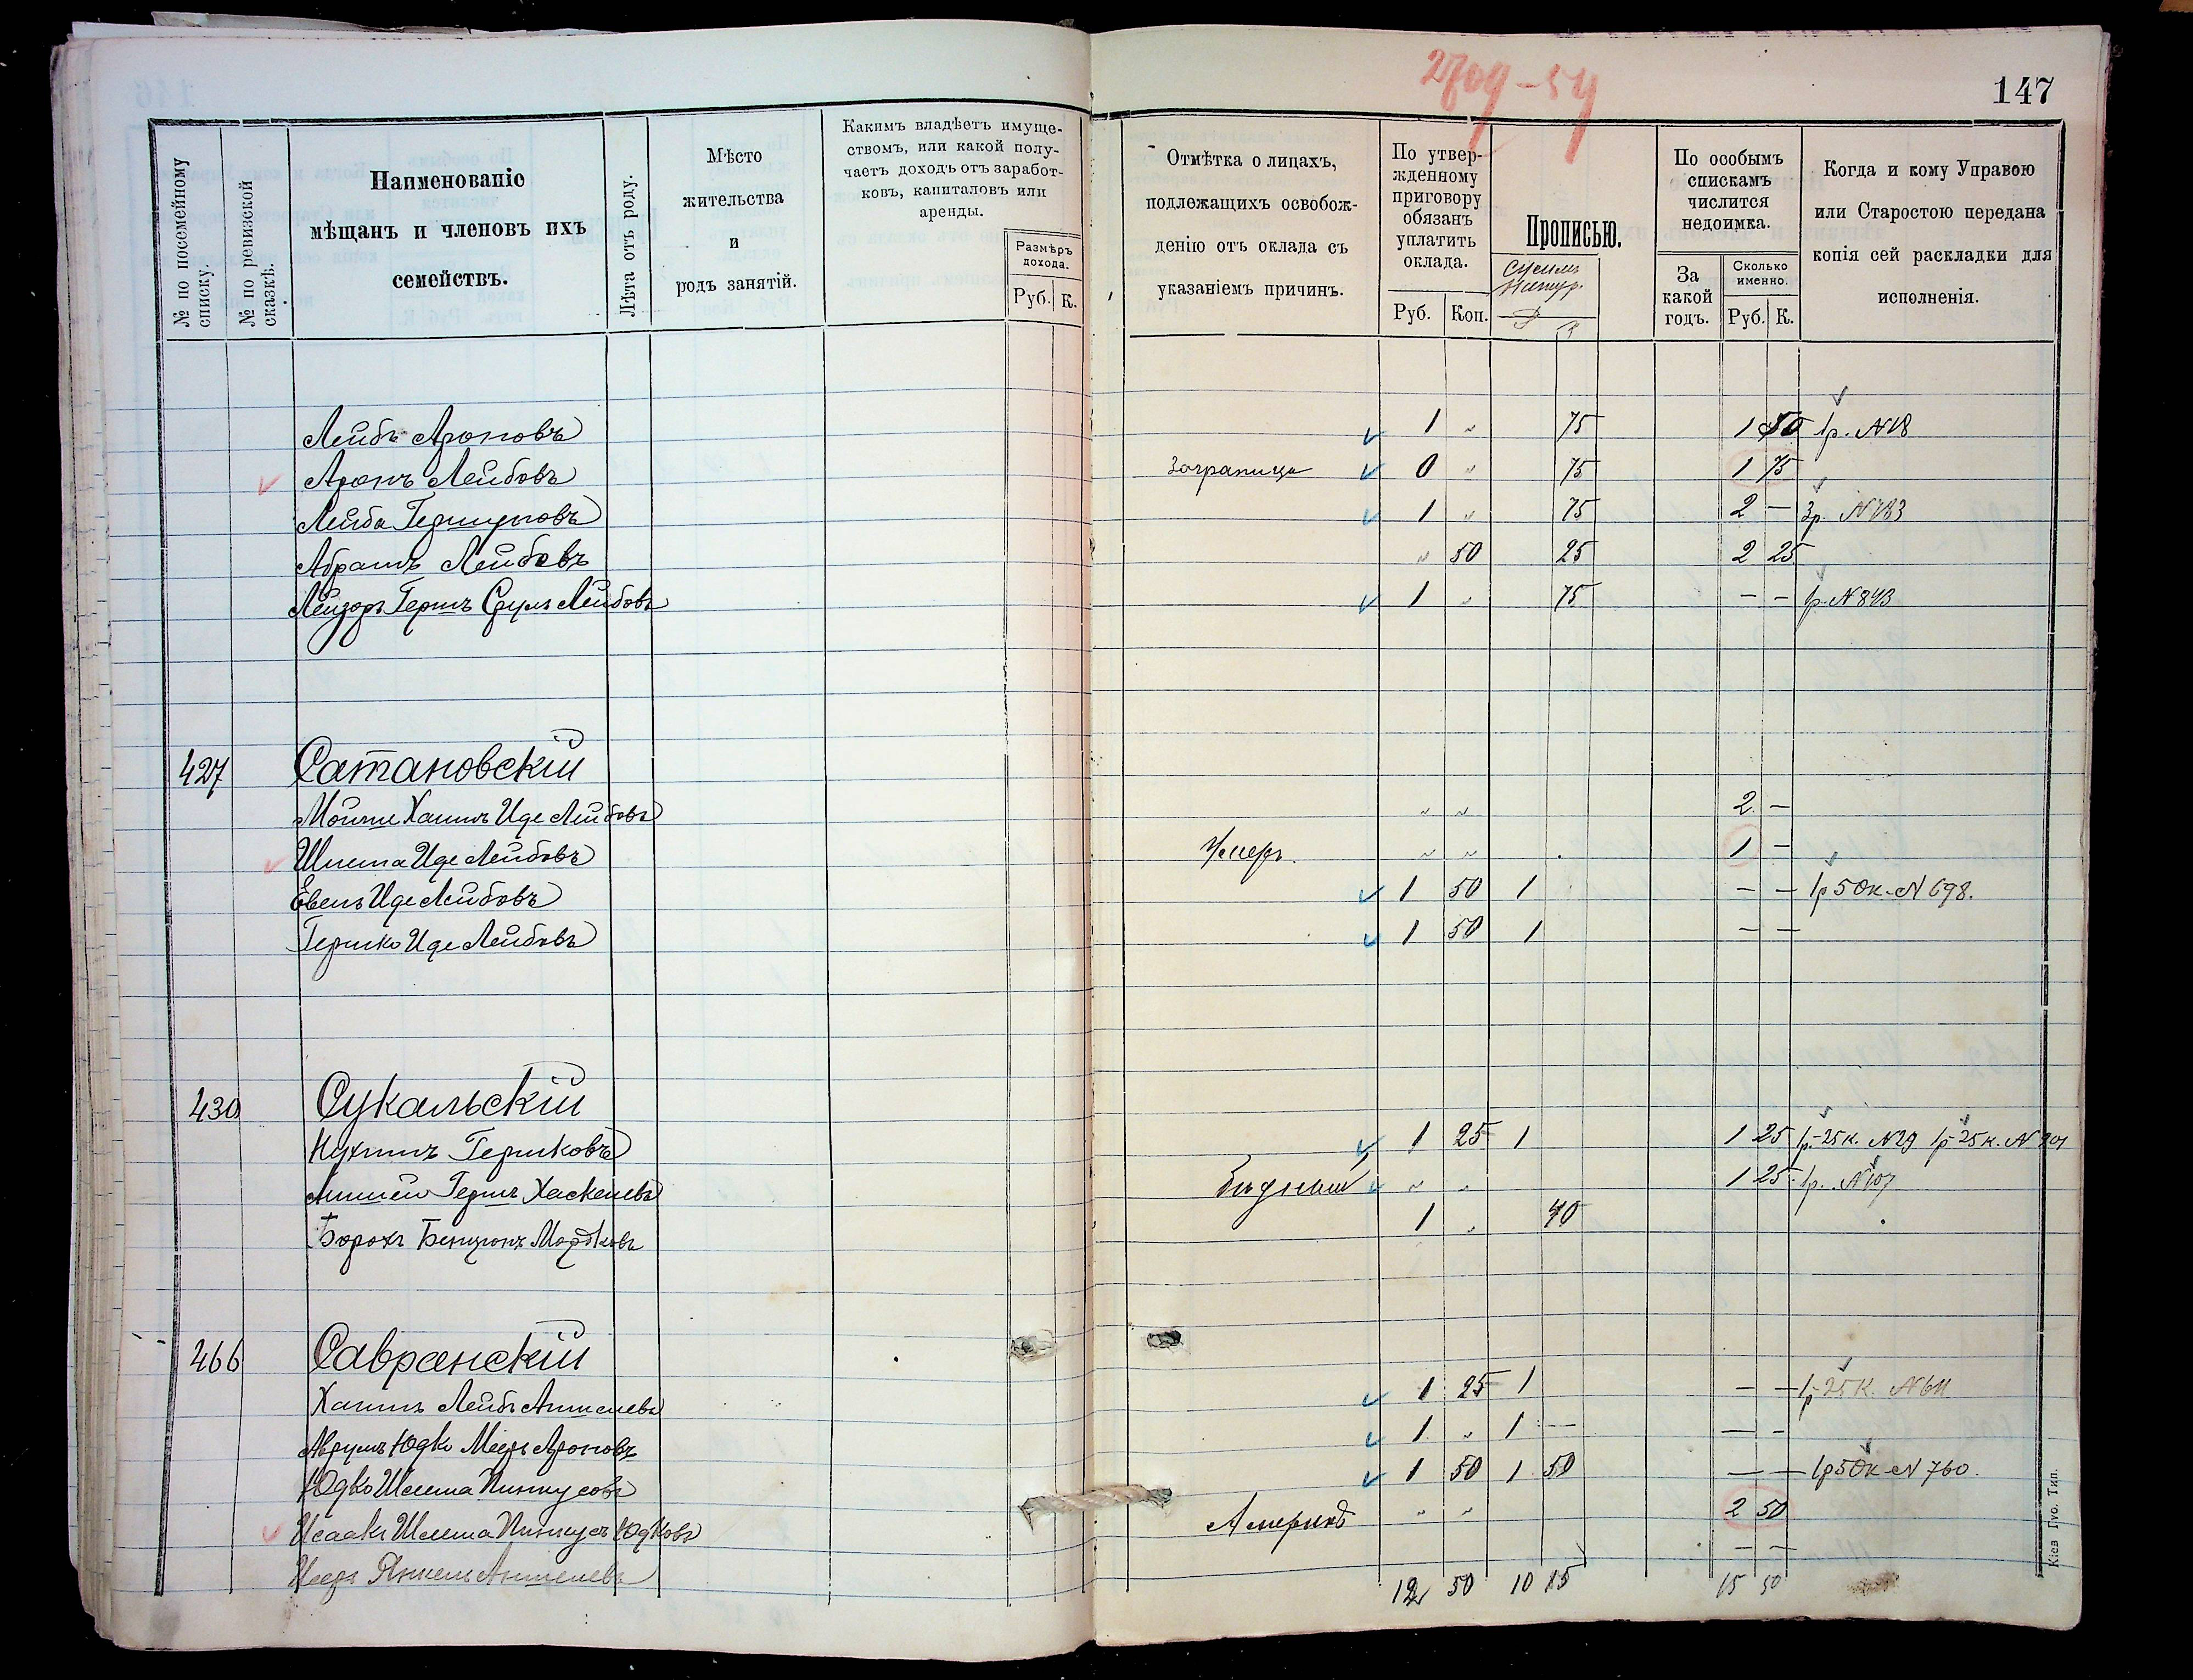 2709-54
147
№ по посемейному списку.
№ по ревизской сказкѣ.
Наименованіе
мѣщанъ и членовъ ихъ
семействъ.
Лѣта отъ роду.
Мѣсто
жительства
и
родъ занятій.
Какимъ владѣетъ имуще-
ствомъ, или какой полу-
чаетъ доходъ отъ заработ-
ковъ, капиталовъ или
аренды.
Размѣръ
дохода.
Руб. К.
Отмѣтка о лицахъ,
подлежащихъ освобож-
денію отъ оклада съ
указаніемъ причинъ.
По утвер-
жденному
приговору
обязанъ
уплатить
оклада.
Руб. Коп.
Прописью.
По особымъ
спискамъ
числится
недоимка.
За
какой
годъ.
Сколько
именно.
Руб. К.
Когда и кому Управою
или Старостою передана
копія сей раскладки для
исполненія.
Лейбъ Ароновъ 1 " 75 1 50 1р. №18
Аронъ Лейбовъ Заграница 0 " 75 1 75
Лейба Гершуновъ 1 " 75 2 — 3р. №783
Абрамъ Лейбовъ " 50 25 2 25
Лейзоръ Гершъ Сруль Лейбовъ 1 " 75 — — 1р. №843
427 Сатановскій
Мойше Хаимъ Иде Лейбовъ " " 2 —
Шлема Иде Лейбовъ Умеръ. " " 1 —
Евель Иде Лейбовъ 1 50 1 — — 1р 50к-№698.
Гершко Иде Лейбовъ 1 50 1 — —
430 Сукальскій
Нухимъ Гершковъ 1 25 1 1 25 1р-25к. №29 1р-25к. №
Аншель Гершъ Хаскелевъ Бѣдный " " 1 25 1р. №107
Борохъ Бенционъ Мордковъ 1 " 40
466 Савранскій
Хаимъ Лейбъ Аншелевъ 1 25 1 — — 1р-25к. №611
Аврумъ Юдко Мееръ Ароновъ 1 " 1 — — —
Юдко Шлема Пинкусовъ 1 50 1 50 — — 1р50к-№760.
Исаакъ Шлема Пинкусъ Юдковъ Америкѣ " " 2 50
Янкель Аншелевъ — —
12 50 10 15 15 50
Кіев Губ. Тип.